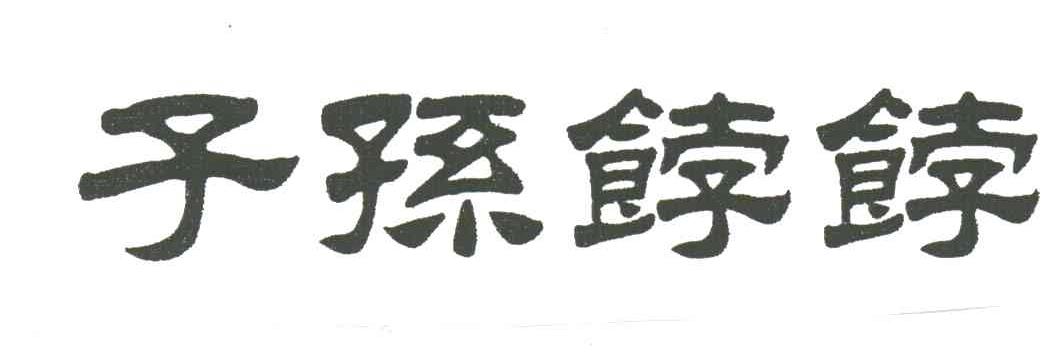 子孫餑餑